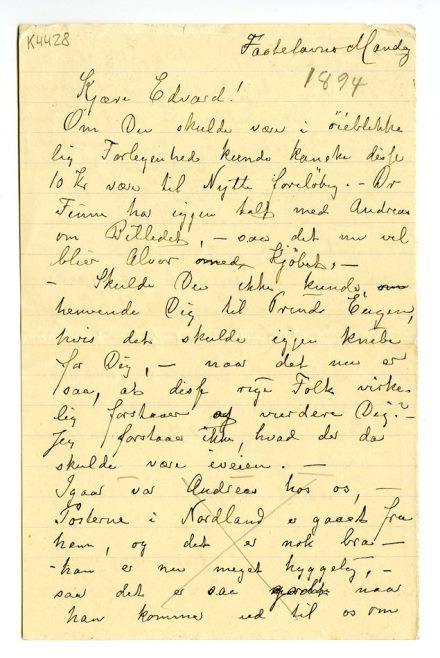 K4428
Fastelavns Mandag
1894
Kjære Edvard!
Om Du skulde være i øieblikke
lig Forlegenhed kunde kanske disse
10 Kr være til Nytte foreløbig. – Dr
Finne har iggjen talt med Andreas
om Billedet, – saa det nu vel
blier Alvor med Kjöbet. –
– Skulde Du ikke kunde
henvende Dig til Prinds Eugen,
hvis det skulde iggjen knibe
for Dig, – naar det nu er
saa, at disse rige Folk virke
lig forstaaer og vurdere Dig? –
Jeg forstaar ikke, hvad der da
skulde være iveien. –
Igaar var Andreas hos os, –
Posterne i Nordland er gaaet fra
ham, og det er nok bra –
han er nu meget hyggelig, –
saa det er saa naar
han komme ud til os om